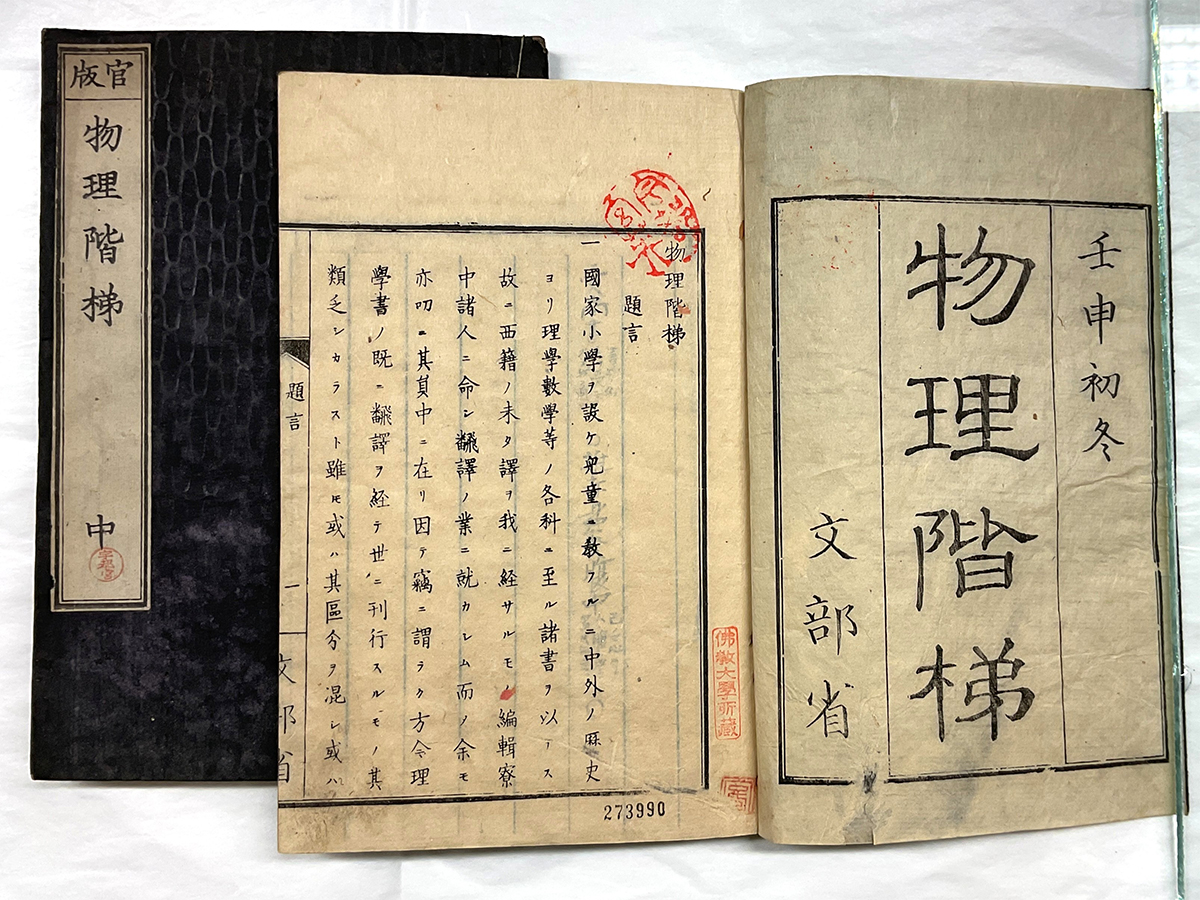 壬申初冬
物理階梯
文部省
物理階梯
題言
一國家小學ヲ設ケ兒童ニ敎フルニ中外ノ歴史
ヨリ理學數學等ノ各科ニ至ル諸書ヲ以ース
故ニ西籍ノ未タ譯ヲ我ニ経サルモノ編輯寮
中諸人ニ命シ飜譯ノ業ニ就カシム而ノ余モ
亦叨ニ其員中ニ在リ因テ竊ニ謂ラク方今理
學書ノ既ニ飜譯ヲ経テ世ニ刊行スルモノ其
類乏シカラスト雖モ或ハ其區分ヲ混シ或ハ
題言
一
文部省
佛敎大學所藏
273990
官版
物理階梯
中